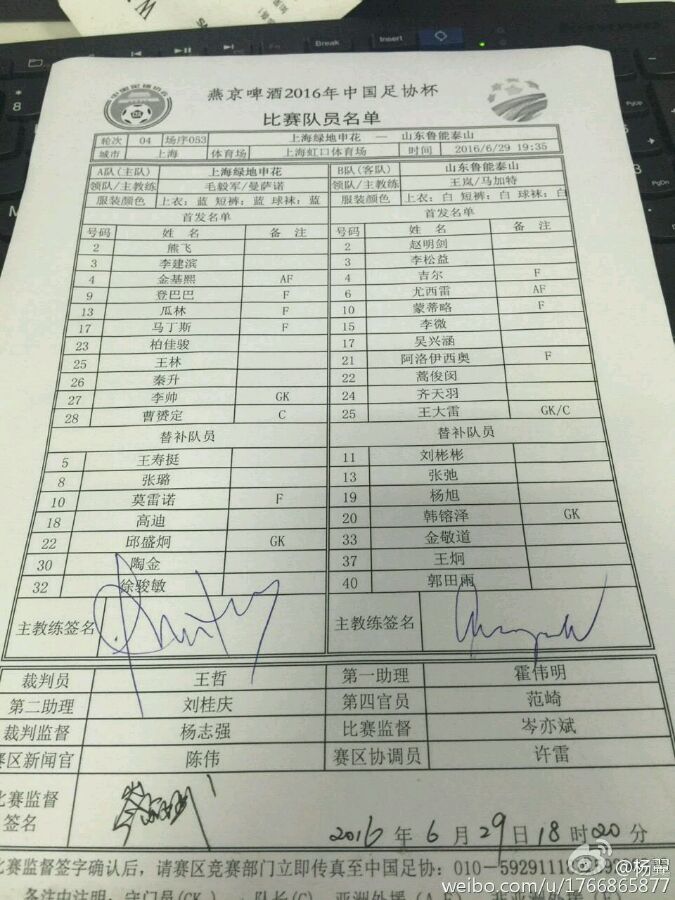 Break
Insert
燕京啤酒2016年中国足协杯
比赛队员名单
轮次 04 场序053 上海绿地申花 — 山东鲁能泰山
城市 上海 体育场 上海虹口体育场 时间 2016/6/29 19:35
A队(主队) 上海绿地申花 B队(客队) 山东鲁能泰山
领队/主教练 毛毅军/曼萨诺 领队/主教练 王岚/马加特
服装颜色 上衣: 蓝 短裤: 蓝 球袜: 蓝 服装颜色 上衣: 白 短裤: 白 球袜: 白
首发名单 首发名单
号码 姓 名 备 注 号码 姓 名 备 注
2 熊飞 2 赵明剑
3 李建滨 3 李松益
4 金基熙 AF 4 吉尔 F
9 登巴巴 F 6 尤西雷 AF
13 瓜林 F 10 蒙蒂略 F
17 马丁斯 F 15 李微
23 柏佳骏 17 吴兴涵
25 王林 21 阿洛伊西奥 F
26 秦升 22 蒿俊闵
27 李帅 GK 24 齐天羽
28 曹赟定 C 25 王大雷 GK/C
替补队员 替补队员
5 王寿挺 11 刘彬彬
8 张璐 13 张弛
10 莫雷诺 F 19 杨旭
18 高迪 20 韩镕泽 GK
22 邱盛炯 GK 33 金敬道
30 陶金 37 王炯
32 徐骏敏 40 郭田雨
主教练签名 主教练签名
裁判员 王哲 第一助理 霍伟明
第二助理 刘桂庆 第四官员 范崎
裁判监督 杨志强 比赛监督 岑亦斌
赛区新闻官 陈伟 赛区协调员 许雷
比赛监督签名
2016 年 6 月 29 日 18 时 20 分
比赛监督签字确认后, 请赛区竞赛部门立即传真至中国足协: 010-5929111
备注中注明: 守门员(GK) 队长(C)
@杨羿
weibo.com/u/1766865877